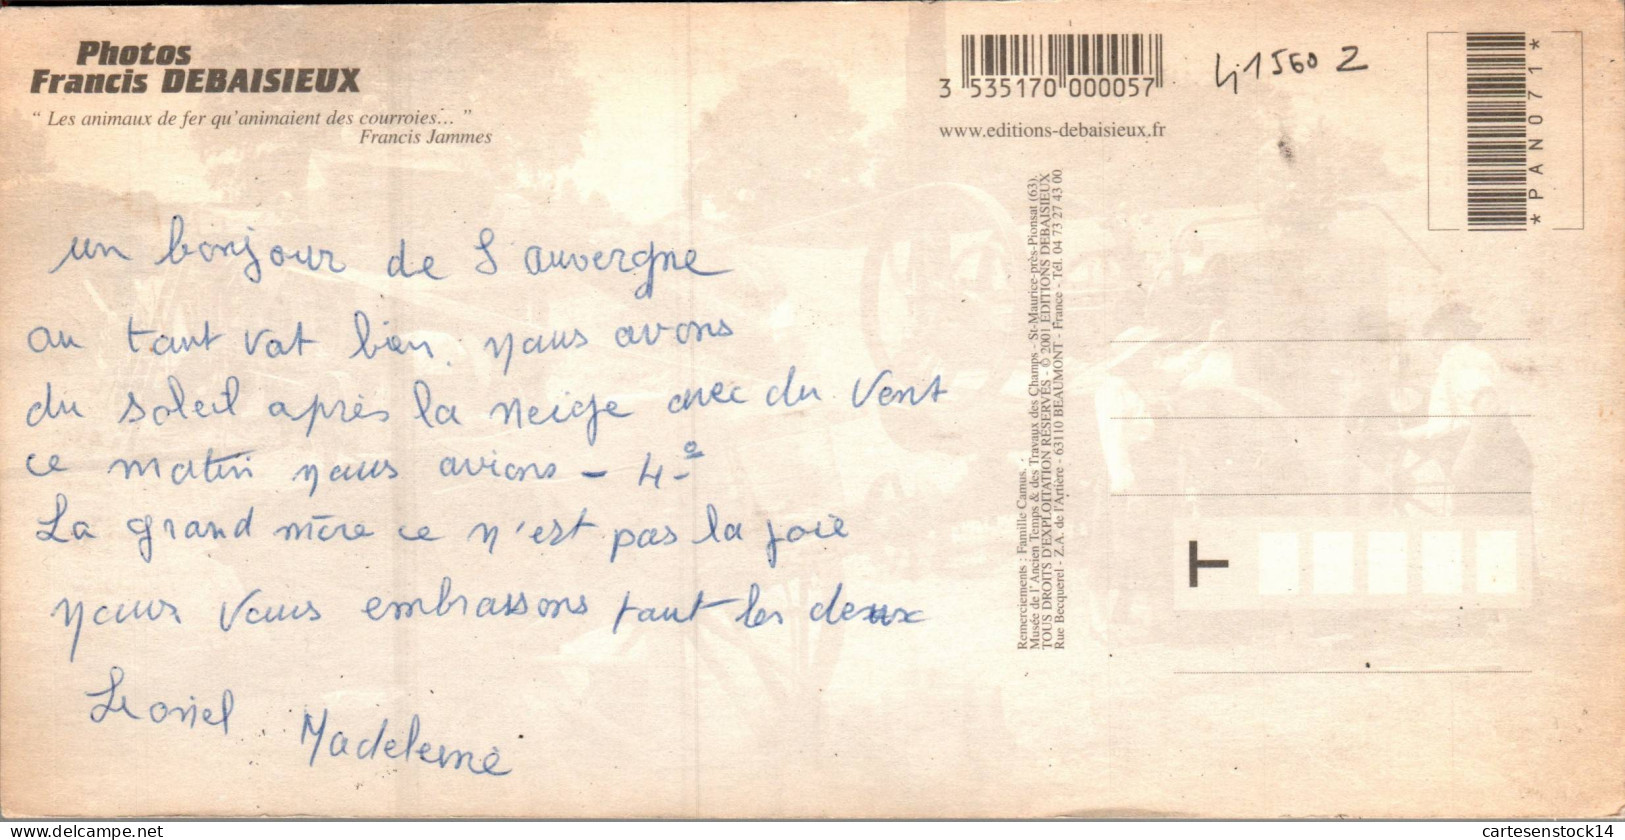 Photos
Francis DEBAISIEUX
“ Les animaux de fer qu’animaient des courroies... ”
Francis Jammes
3 535170 000057
www.editions-debaisieux.fr
41560 Z
*PAN071*
Remerciements : Famille Camus.
Musée de l’Ancien Temps & des Travaux des Champs - St-Maurice-près-Pionsat (63).
TOUS DROITS D’EXPLOITATION RÉSERVÉS - © 2001 EDITIONS DEBAISIEUX
Rue Becquerel - Z.A. de l’Artière - 63110 BEAUMONT - France - Tél. 04 73 27 43 00
un bonjour de l auvergne
ou tout vat bien. nous avons
du soleil après la neige avec du vent
ce matin nous avions - 4-°
La grand mère ce n'est pas la joie
nous vous embrassons tout les deux
Lionel Madeleine
T
cartesenstock14